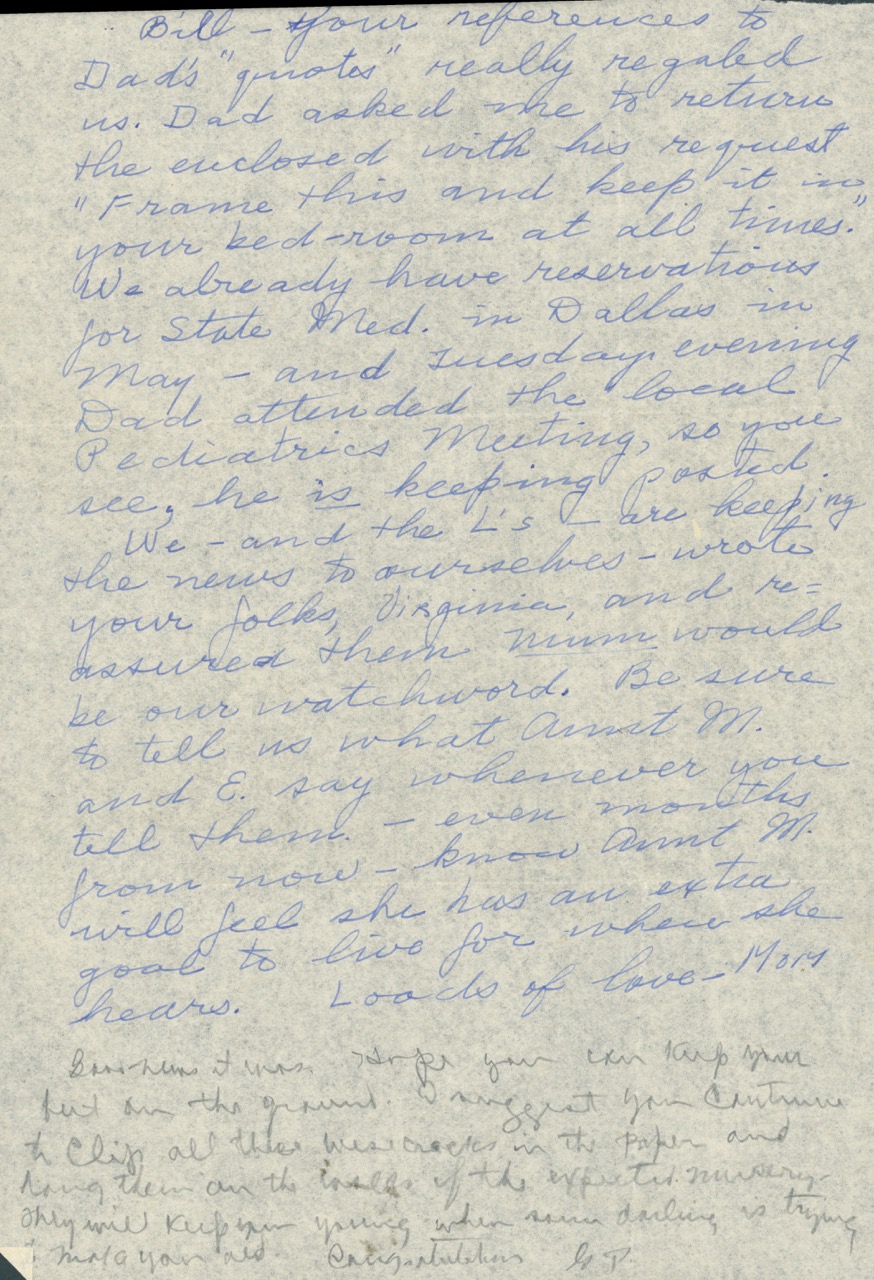 Bill - Your references to
Dad's "quotes" really regaled
us. Dad asked me to return
the enclosed with his request
"Frame this and keep it in
your bed-room at all times."
We already have reservations
for State Med. in Dallas in
May - and Tuesday evening
Dad attended the local
Pediatrics Meeting, so you
see, he is keeping posted.
We - and the L's - are keeping
the news to ourselves - wrote
your folks, Virginia, and re=
assured them mum would
be our watchword. Be sure
to tell us what Aunt M.
and E. say whenever you
tell them. - even months
from now - know Aunt M.
will feel she has an extra
goal to live for when she
hears. Loads of love - Mom
Good news it was. Hope you can keep your
feet on the ground. I suggest you continue
to clip all these wisecracks in the paper and
hang them on the walls of the expected nursery.
They will keep you young when some darling is trying
to make you old. Congratulations G.P.